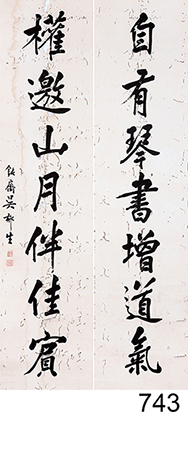 自有琴書增道氣
權邀山月伴佳賓
鈍齋吳郁生
743